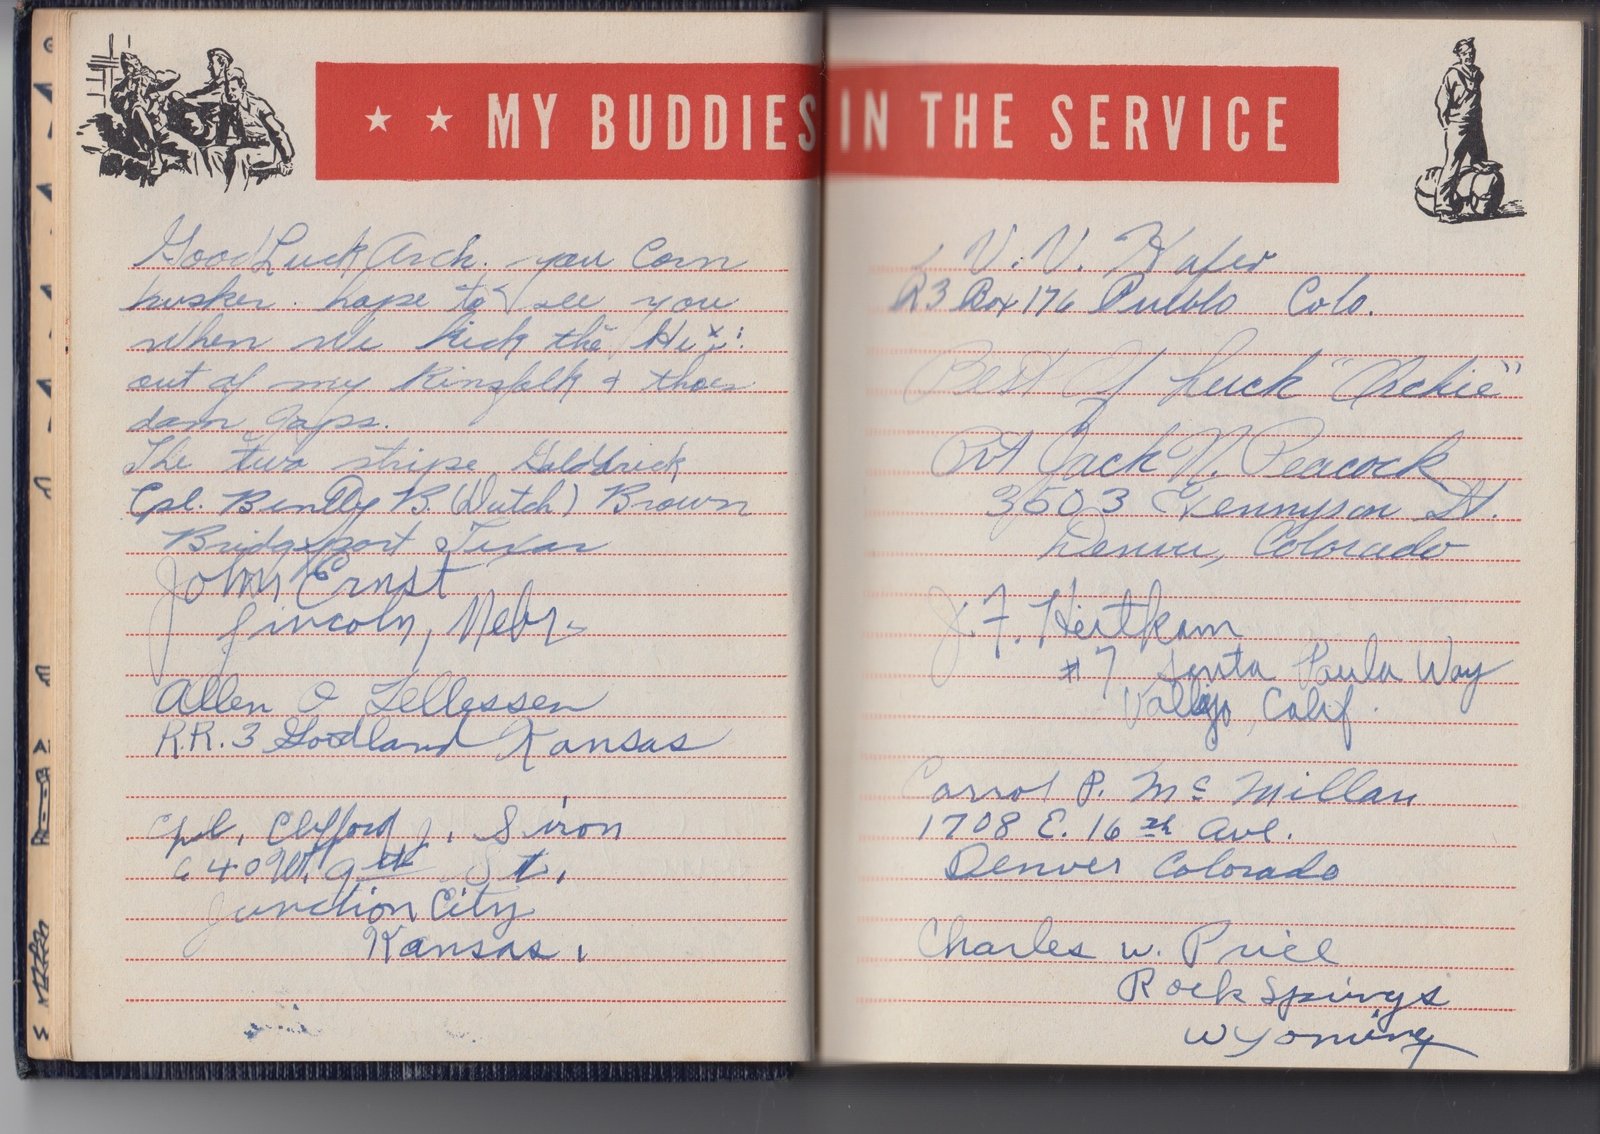 ★ ★ MY BUDDIES IN THE SERVICE
Good Luck Arch. you Corn
husker. hope to see you
when we kick the
out of my Kinsfolk & thoes
dam Japs.
The two stripe Goldbrick
Cpl. Bently B. (Dutch) Brown
Bridgeport Texas
John Ernst
Lincoln, Nebr.
Allen O Tellessen
R.R. 3 Goodland Kansas
Cpl. Clifford J. Siron
640 W. 9th St.
Junction City
Kansas.
V. V. Hafer
R3 Box 176 Pueblo Colo.
Best Of Luck "Archie"
Pvt Jack N. Peacock
3503 Tennyson St.
Denver, Colorado
J. F. Heitkam
#7 Santa Paula Way
Vallejo, Calif.
Carrol P. McMillan
1708 E. 16th Ave.
Denver Colorado
Charles W. Price
Rock Springs
Wyoming